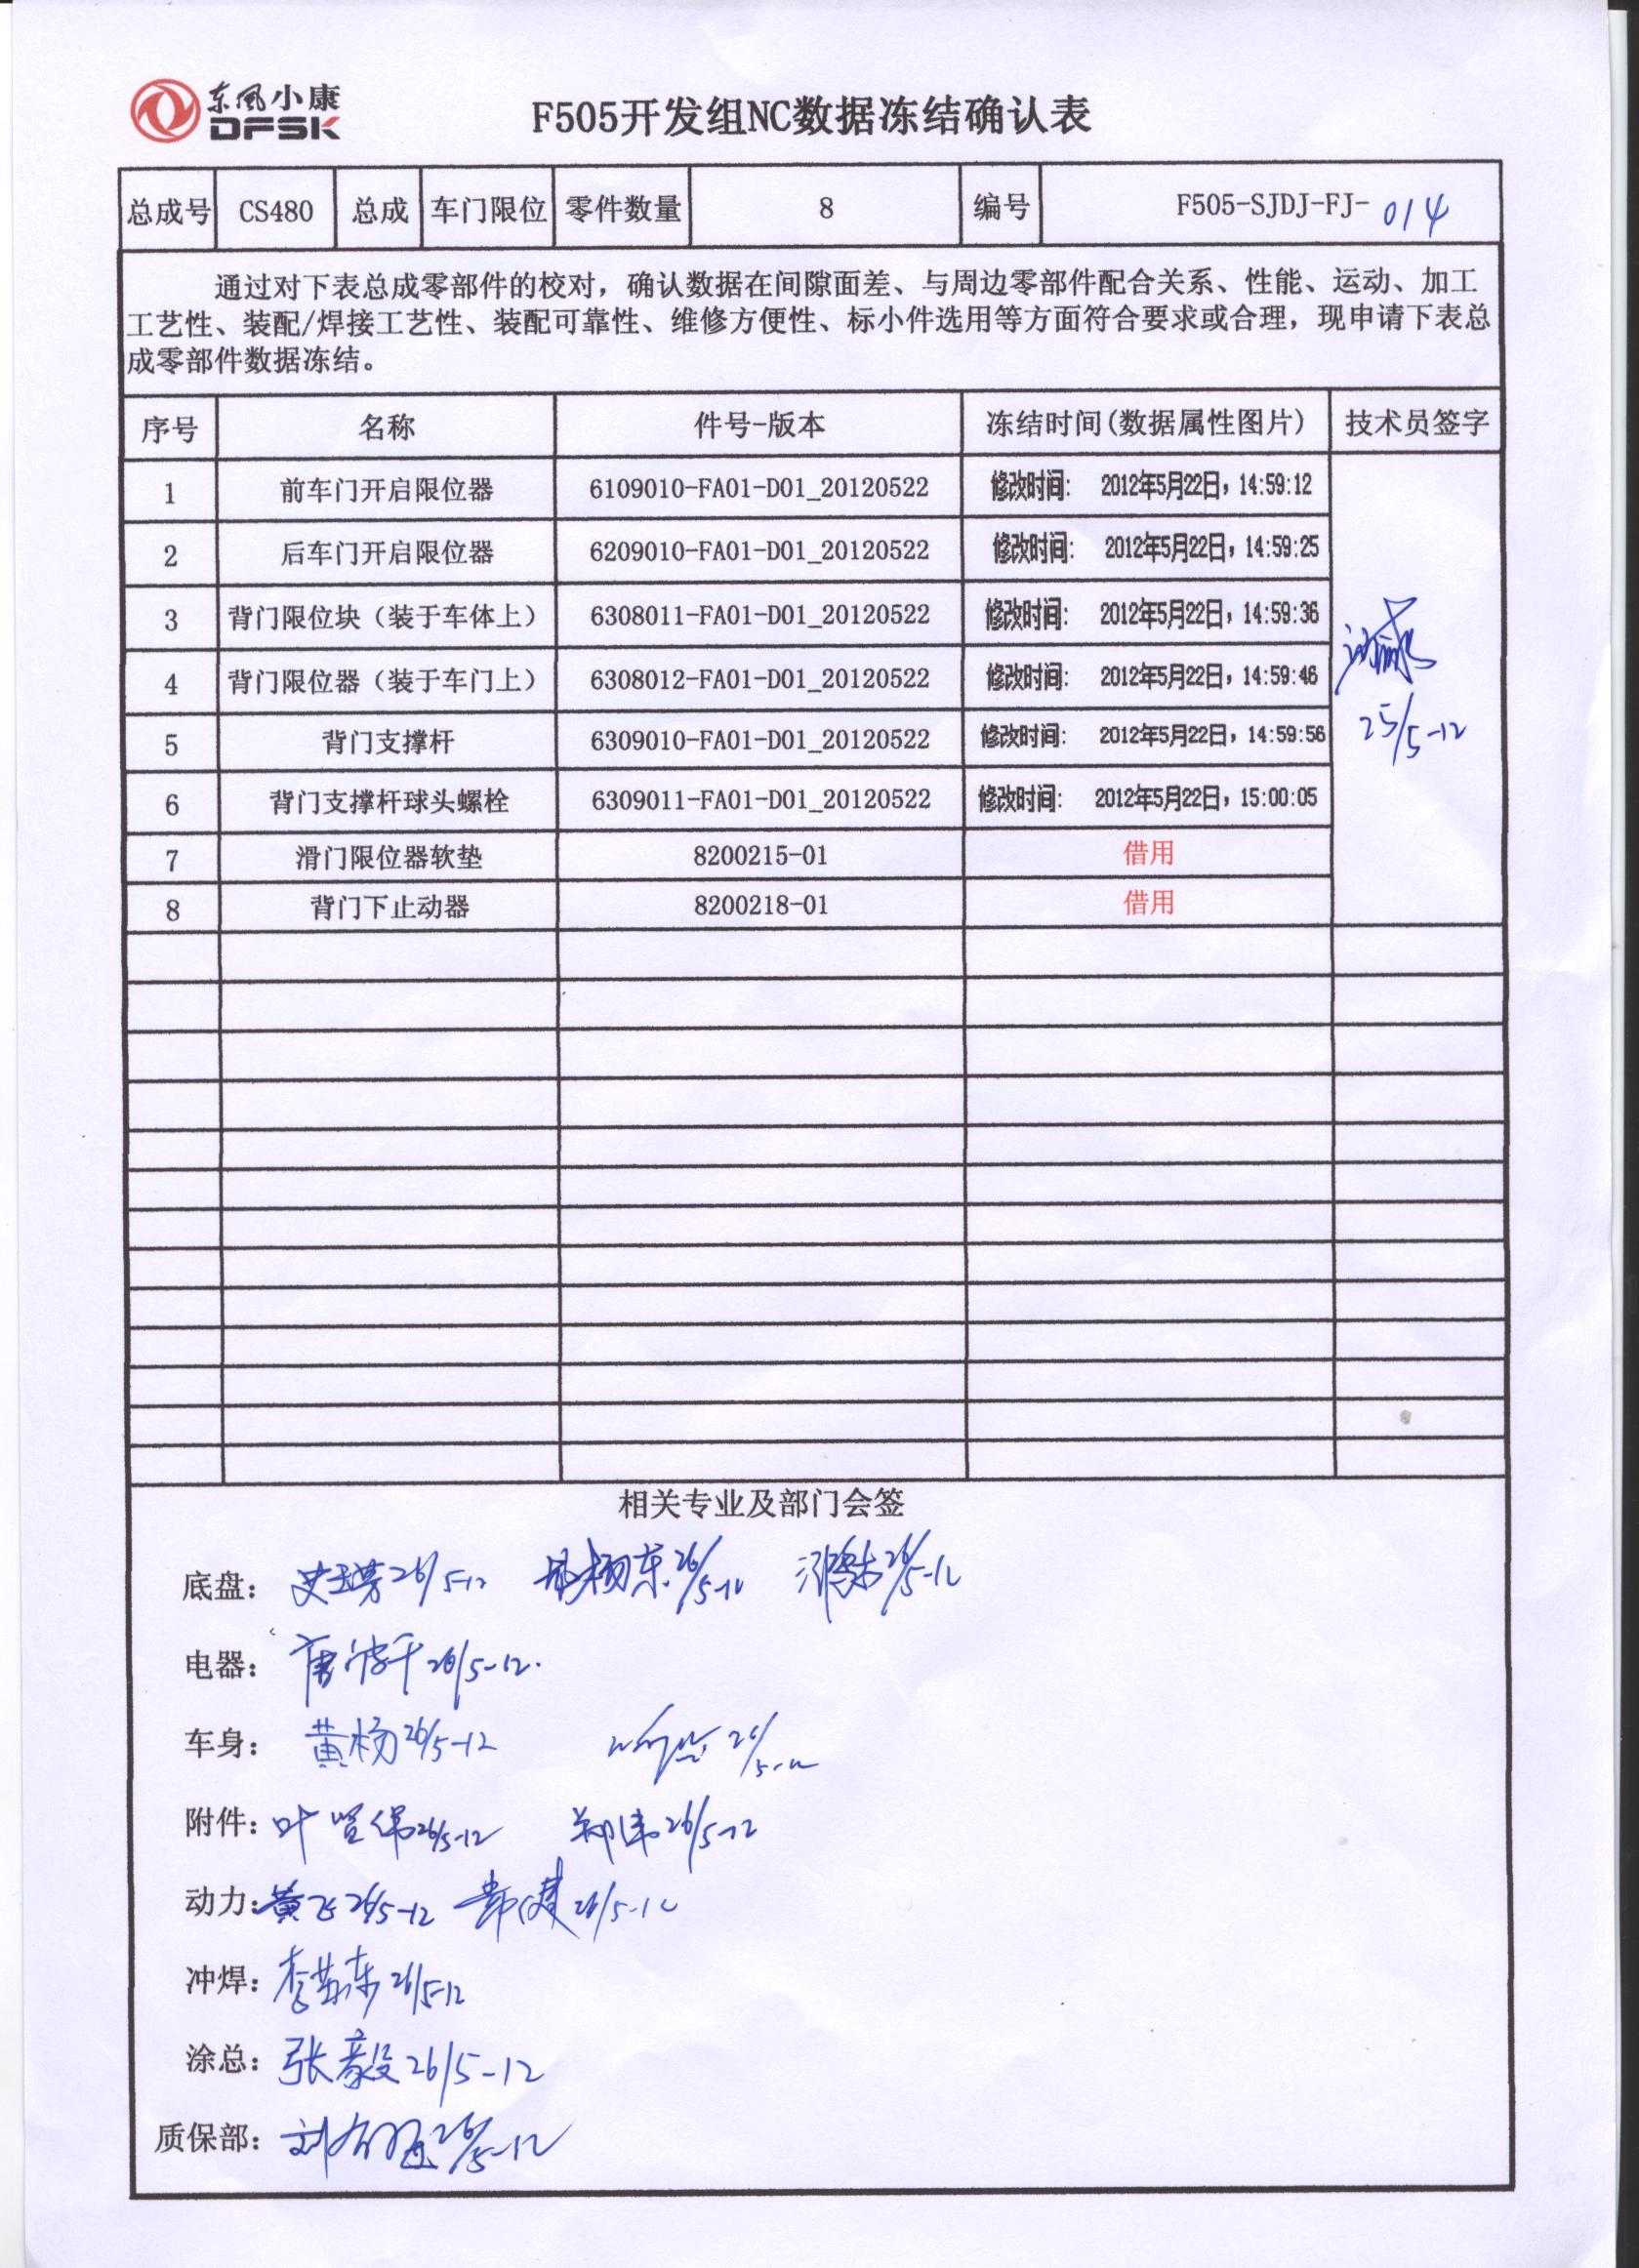 东风小康
DFSK
F505开发组NC数据冻结确认表
总成号 CS480 总成 车门限位 零件数量 8 编号 F505-SJDJ-FJ-014
通过对下表总成零部件的校对，确认数据在间隙面差、与周边零部件配合关系、性能、运动、加工
工艺性、装配/焊接工艺性、装配可靠性、维修方便性、标小件选用等方面符合要求或合理，现申请下表总
成零部件数据冻结。
序号 名称 件号-版本 冻结时间(数据属性图片) 技术员签字
1 前车门开启限位器 6109010-FA01-D01_20120522 修改时间: 2012年5月22日，14:59:12
2 后车门开启限位器 6209010-FA01-D01_20120522 修改时间: 2012年5月22日，14:59:25
3 背门限位块（装于车体上） 6308011-FA01-D01_20120522 修改时间: 2012年5月22日，14:59:36
4 背门限位器（装于车门上） 6308012-FA01-D01_20120522 修改时间: 2012年5月22日，14:59:46
25/5-12
5 背门支撑杆 6309010-FA01-D01_20120522 修改时间: 2012年5月22日，14:59:56
6 背门支撑杆球头螺栓 6309011-FA01-D01_20120522 修改时间: 2012年5月22日，15:00:05
7 滑门限位器软垫 8200215-01 借用
8 背门下止动器 8200218-01 借用
相关专业及部门会签
底盘: 26/5-12 26/5-12 26/5-12
电器: 26/5-12.
车身: 黄杨 26/5-12 26/5-12
附件: 叶 26/5-12 郑伟 26/5-12
动力: 黄飞 26/5-12 26/5-12
冲焊: 李 东 26/5-12
涂总: 张毅 26/5-12
质保部: 刘 26/5-12